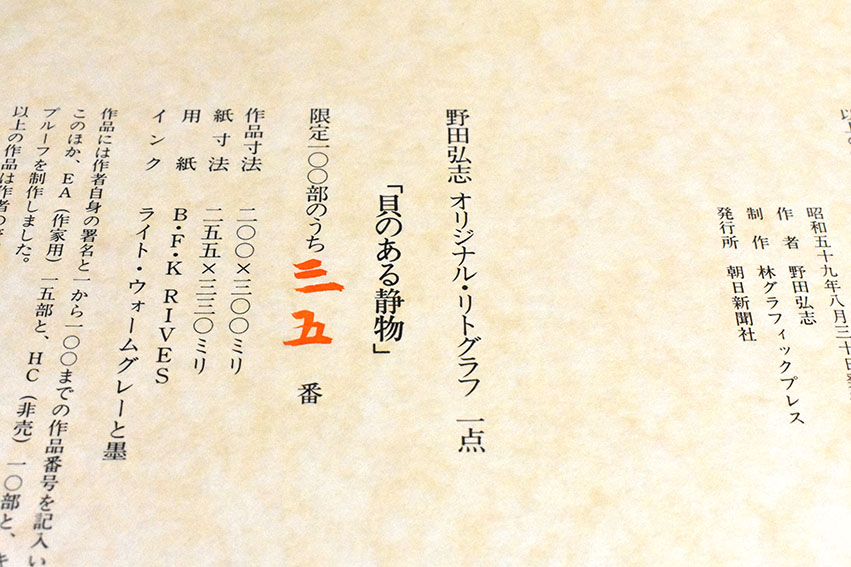 以上の
昭和五十九年八月三十日発
作者 野田弘志
制作 林グラフィックプレス
発行所 朝日新聞社
野田弘志 オリジナル・リトグラフ 一点
「貝のある静物」
限定一〇〇部のうち 三五 番
作品寸法 二〇〇×三〇〇ミリ
紙寸法 二五五×三三〇ミリ
用紙 B・F・K RIVES
インク ライト・ウォームグレーと墨
作品には作者自身の署名と一から一〇〇までの作品番号を記入い
このほか、EA（作家用）一五部と、HC（非売）一〇部と、キ
プルーフを制作しました。
以上の作品は作者の